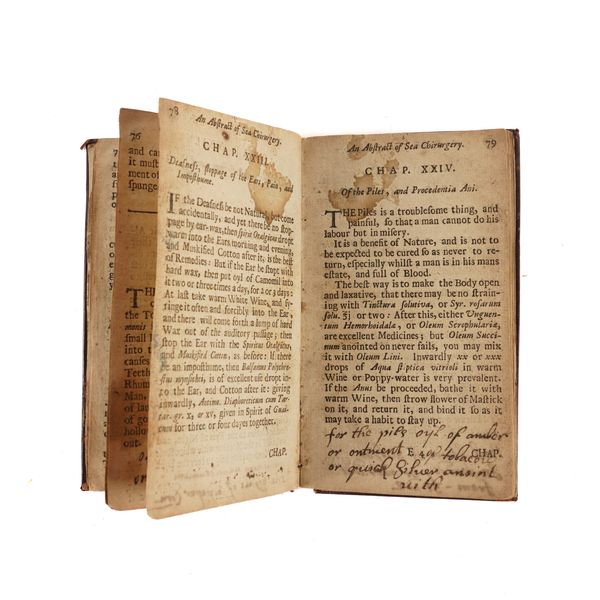 76
and ca
it must
ment of
spunge
TH
the To
monis
small
into th
causes
Teeth
Rhum
Man,
of la
good
hollo
out.
78
An Abstract of Sea Chirurgery.
CHAP. XXIII.
Deafness, stoppage of the Ears, Pain, and
Imposthume.
IF the Deafness be not Natural, but come
accidentally, and yet there be no stop-
page by ear-wax, then spirit Otalgicus dropt
warm into the Ears morning and evening,
and Muskified Cotton after it, is the best
of Remedies: But if the Ear be stopt with
hard wax, then put oyl of Camomil into
it two or three times a day, for 2 or 3 days:
At last take warm White Wine, and sy-
ringe it often and forcibly into the Ear,
and there will come forth a lump of hard
Wax out of the auditory passage; then
stop the Ear with the Spiritus Otalgicus,
and Muskified Cotton, as before: If there
be an imposthume, then Balsamus Polychre-
stus mynsichti, is of excellent use dropt in-
to the Ear, and Cotton after it: giving
inwardly, Antim. Diaphoreticum cum Tar-
tar. gr. x, or xv, given in Spirit of Guai-
cum for three or four dayes together.
CHAP.
An Abstract of Sea Chirurgery. 79
CHAP. XXIV.
Of the Piles, and Procedentia Ani.
THE Piles is a troublesome thing, and
painful, so that a man cannot do his
labour but in misery.
It is a benefit of Nature, and is not to
be expected to be cured so as never to re-
turn, especially whilst a man is in his mans
estate, and full of Blood.
The best way is to make the Body open
and laxative, that there may be no strain-
ing with Tinctura solutiva, or Syr. rosarum
solu. ℥j or two: After this, either Unguen-
tum Hemorhoidale, or Oleum Scrophulariæ,
are excellent Medicines; but Oleum Succi-
num anointed on never fails, you may mix
it with Oleum Lini. Inwardly xx or xxx
drops of Aqua stiptica vitrioli in warm
Wine or Poppy-water is very prevalent.
If the Anus be proceeded, bathe it with
warm Wine, then strow flower of Mastick
on it, and return it, and bind it so as it
may take a habit to stay up.
for the pils oyl of amber
or ointment E 4 of tobacco CHAP.
or quick Silver anoint
with